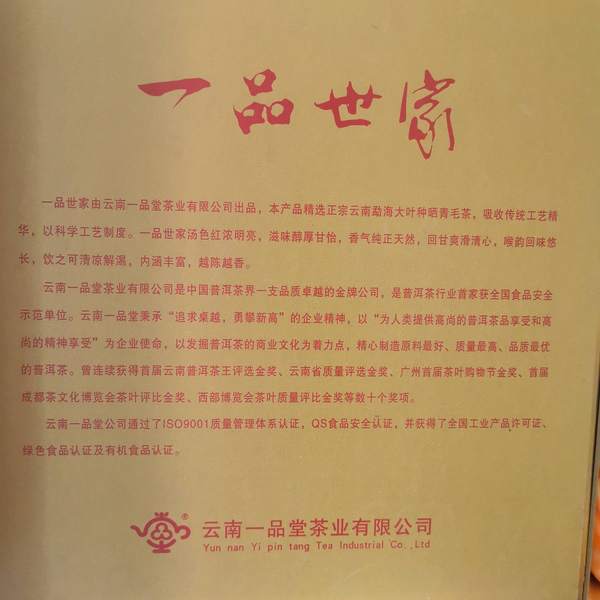 一品世家
一品世家由云南一品堂茶业有限公司出品，本产品精选正宗云南勐海大叶种晒青毛茶，吸收传统工艺精
华，以科学工艺制度。一品世家汤色红浓明亮，滋味醇厚甘怡，香气纯正天然，回甘爽滑清心，喉韵回味悠
长，饮之可清凉解渴，内涵丰富，越陈越香。
云南一品堂茶业有限公司是中国普洱茶界一支品质卓越的金牌公司，是普洱茶行业首家获全国食品安全
示范单位。云南一品堂秉承“追求桌越，勇攀新高”的企业精神，以“为人类提供高尚的普洱茶品享受和高
尚的精神享受”为企业使命，以发掘普洱茶的商业文化为着力点，精心制造原料最好、质量最高、品质最优
的普洱茶。曾连续获得首届云南普洱茶王评选金奖、云南省质量评选金奖、广州首届茶叶购物节金奖、首届
成都茶文化博览会茶叶评比金奖、西部博览会茶叶质量评比金奖等数十个奖项。
云南一品堂公司通过了ISO9001质量管理体系认证，QS食品安全认证，并获得了全国工业产品许可证、
绿色食品认证及有机食品认证。
®
云南一品堂茶业有限公司
Yun nan Yi pin tang Tea Industrial Co.,Ltd